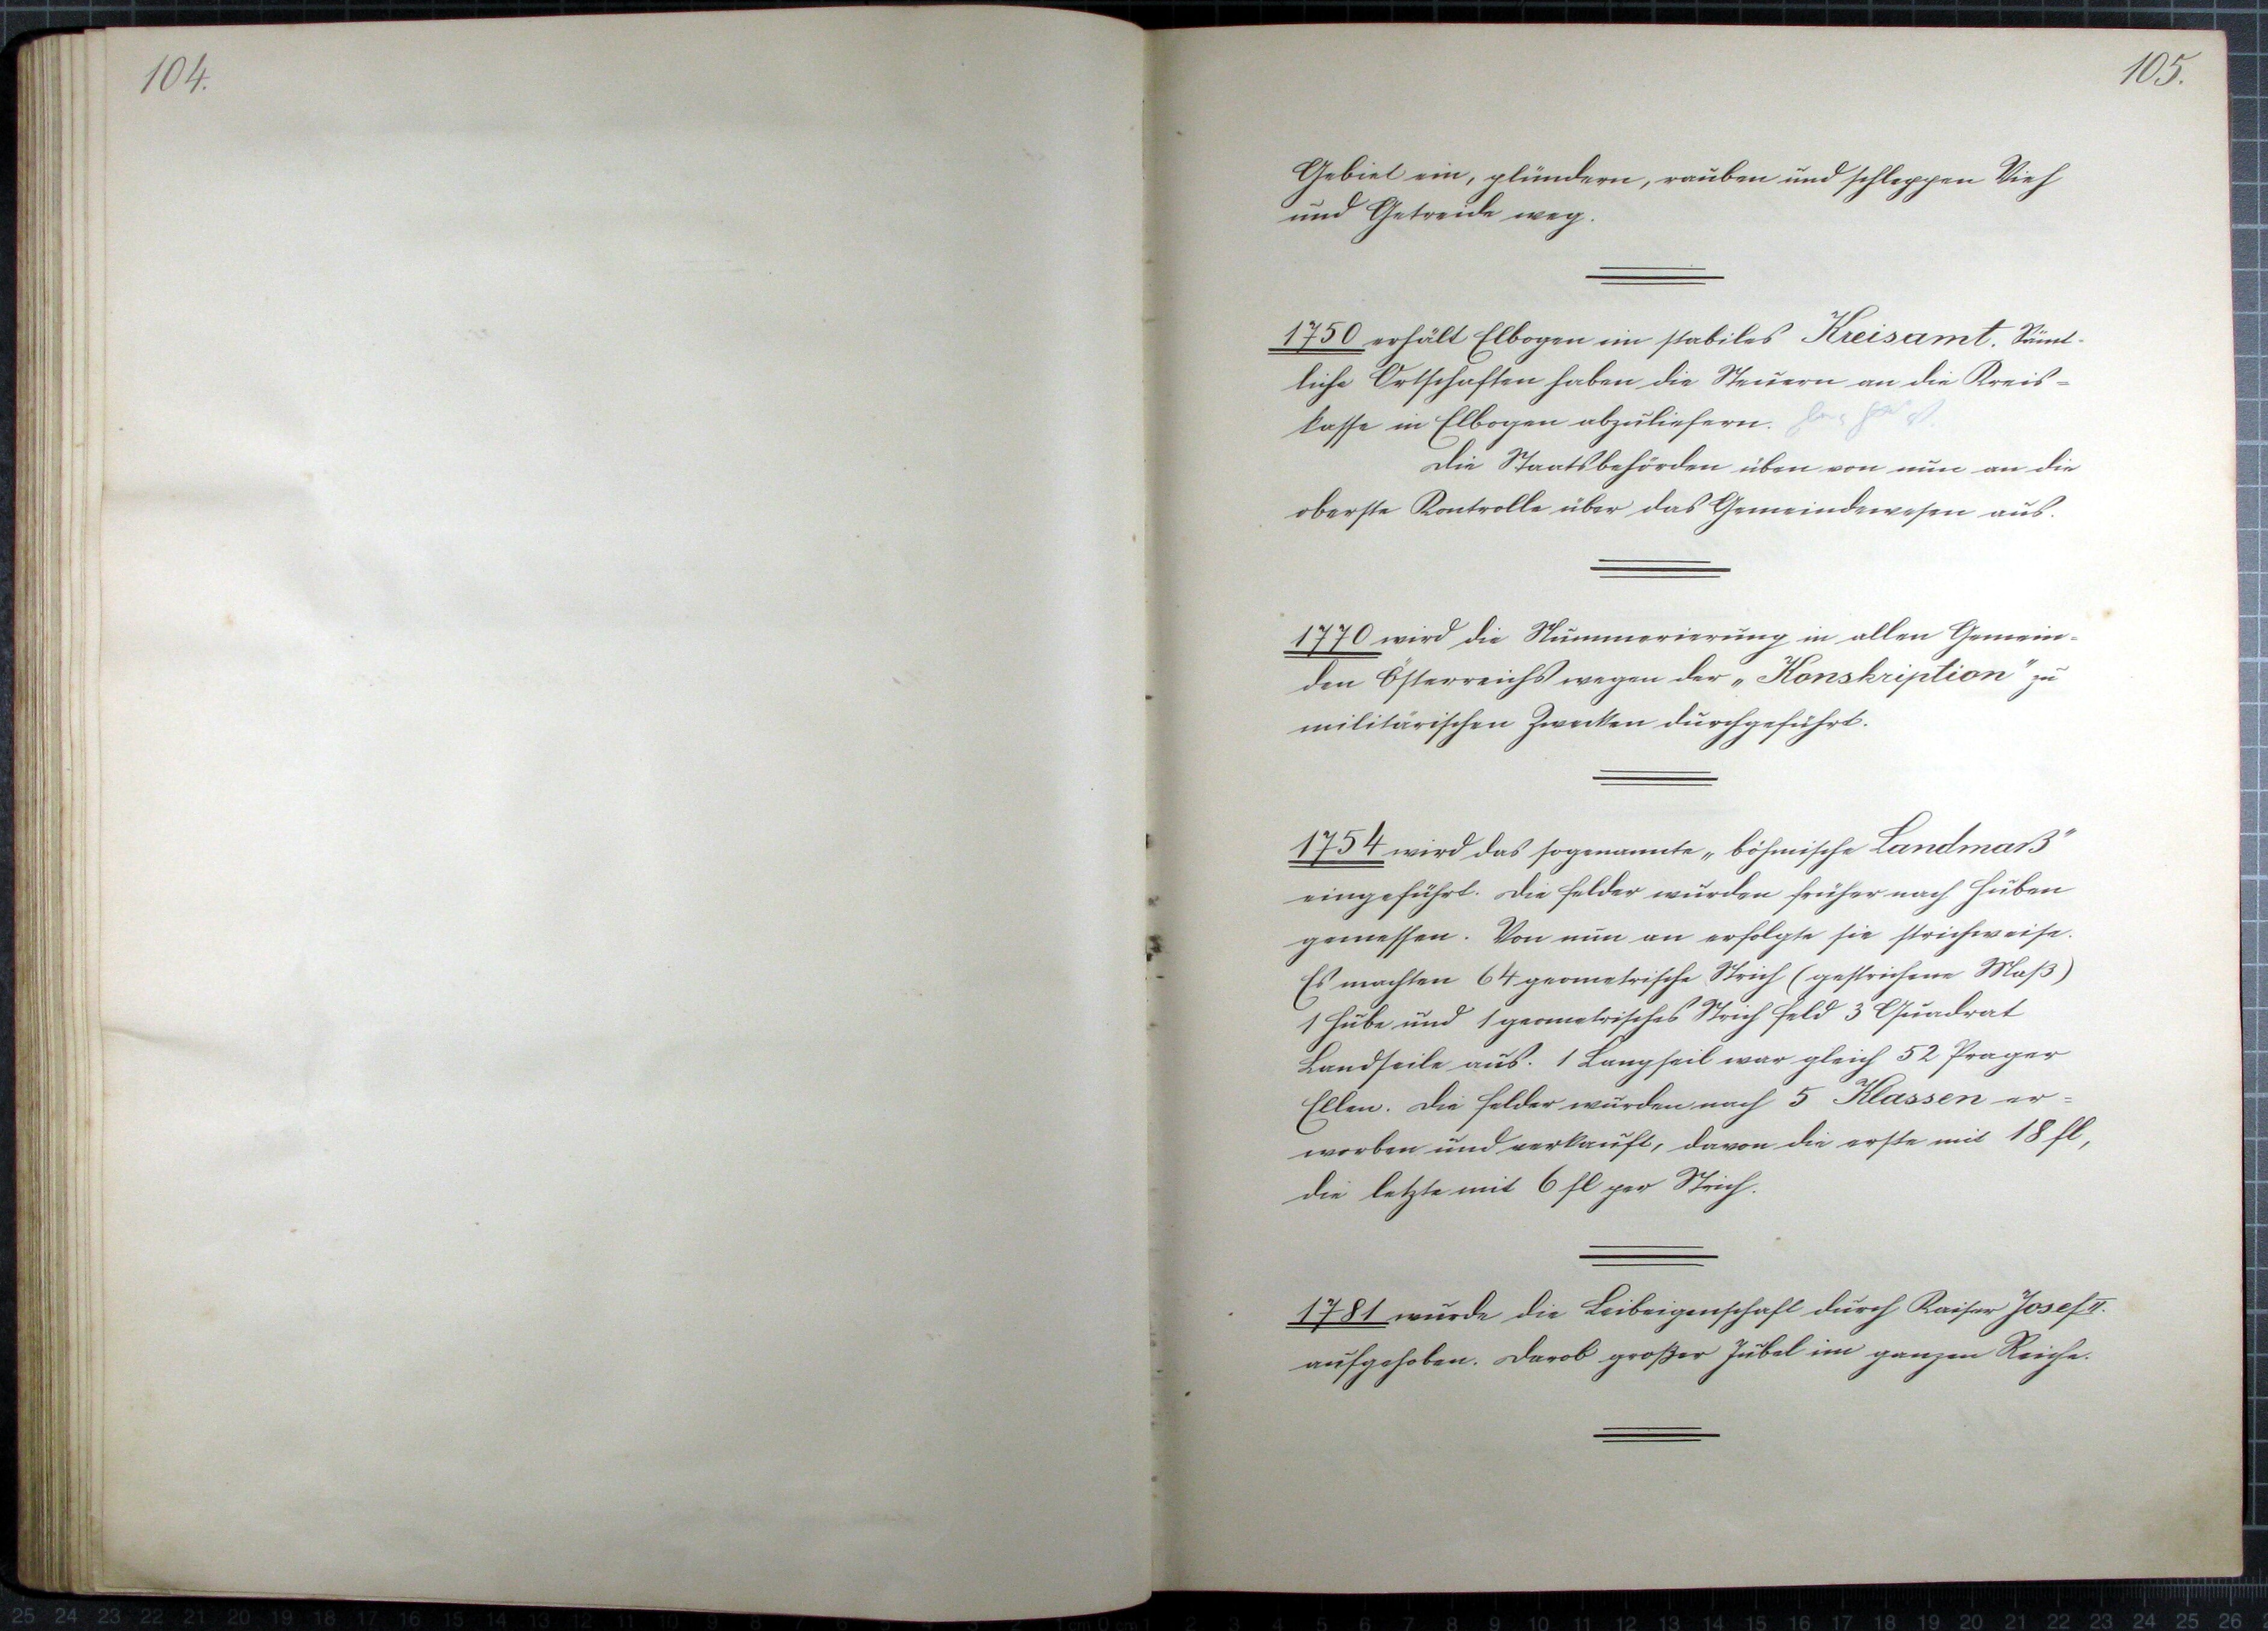 104.
105.
Gebiet ein, plündern, rauben und schleppen Vieh
und Getreide weg.
1750 erhält Elbogen ein stabiles Kreisamt. Sämt-
liche Ortschaften haben die Steuern an die Kreis=
kasse in Elbogen abzuliefern.
Die Staatsbehörden üben von nun an die
oberste Kontrolle über das Gemeindewesen aus.
1770 wird die Nummerierung in allen Gemein=
den Österreichs wegen der „Konskription" zu
militärischen Zwecken durchgeführt.
1754 wird das sogenannte „böhmische Landmaß"
eingeführt. Die Felder wurden früher nach Huben
gemessen. Von nun an erfolgte sie strichweise.
Es machten 64 geometrische Strich (gestrichene Maß)
1 Hube und 1 geometrisches Strich Feld 3 Quadrat
Landseile aus. 1 Langseil war gleich 52 Prager
Ellen. Die Felder wurden nach 5 Klassen er=
worben und verkauft, davon die erste mit 18 fl,
die letzte mit 6 fl per Strich.
1781 wurde die Leibeigenschaft durch Kaiser Josef II.
aufgehoben. Darob großer Jubel im ganzen Reiche.
25 24 23 22 21 20 19 18 17 16 15 14 13 12 11 10 9 8 7 6 5 4 3 2 1 cm 0 cm 1 2 3 4 5 6 7 8 9 10 11 12 13 14 15 16 17 18 19 20 21 22 23 24 25 26